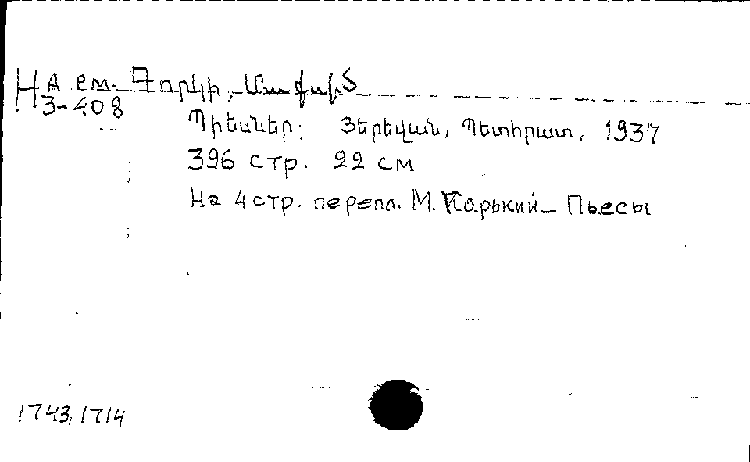 На рм. Գորկի, Մաքսիմ
З-408
Պիեսներ: Յերեվան, Պետհրատ, 1937
396 стр. 22 см
На 4 стр. перепл. М. Карький – Пьесы
1743/1714